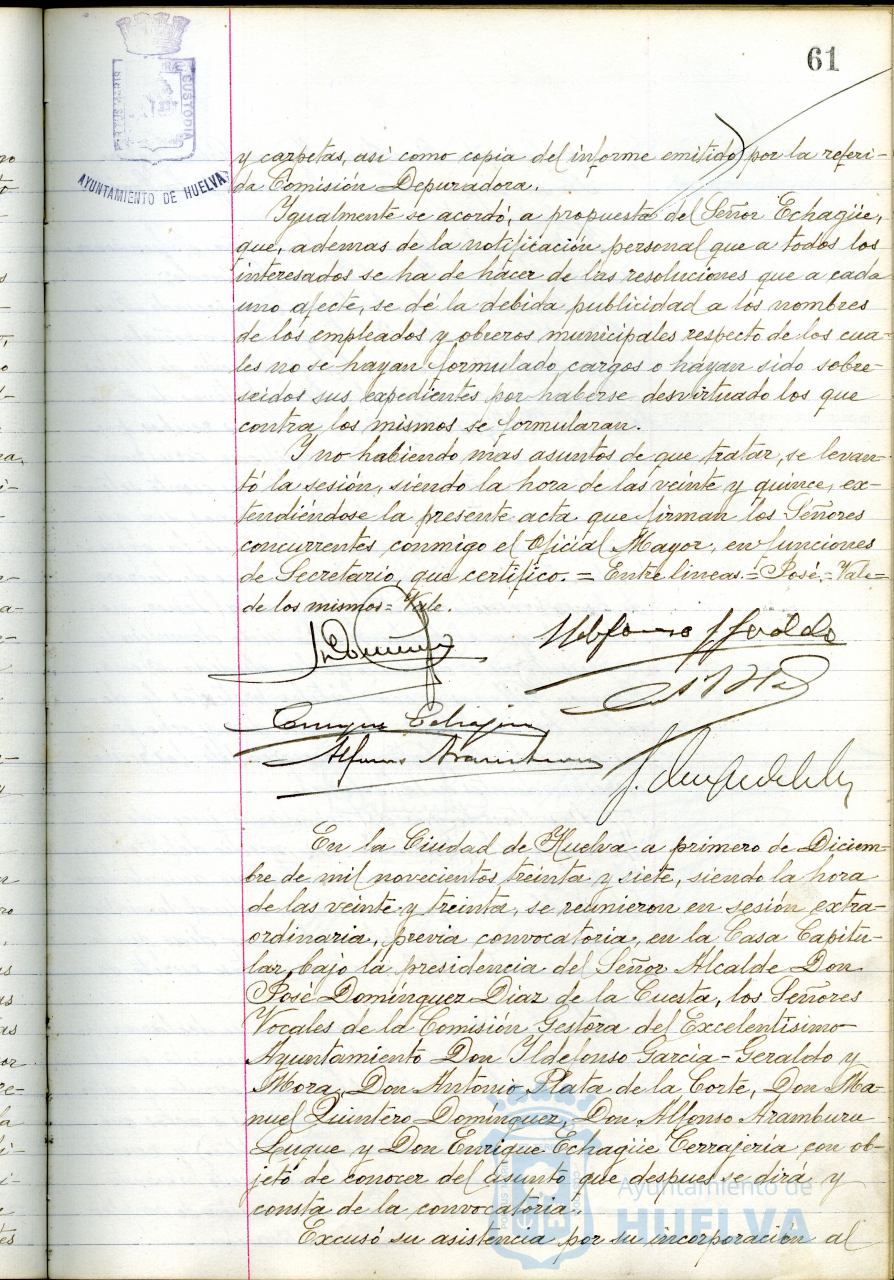 61
PORTUS MARIS
CUSTODIA
AYUNTAMIENTO DE HUELVA
y carpetas, asi como copia del informe emitido por la referi-
da Comisión Depuradora.
Igualmente se acordó, a propuesta del Señor Echagüe,
que, ademas de la notificación personal que a todos los
interesados se ha de hacer de las resoluciones que a cada
uno afecte, se dé la debida publicidad a los nombres
de los empleados y obreros municipales respecto de los cua-
les no se hayan formulado cargos o hayan sido sobre-
seidos sus expedientes por haberse desvirtuado los que
contra los mismos se formularan.
Y no habiendo mas asuntos de que tratar, se levan-
tó la sesión, siendo la hora de las veinte y quince, ex-
tendiéndose la presente acta que firman los Señores
concurrentes conmigo el Oficial Mayor, en funciones
de Secretario, que certifico. = Entre lineas = José = Vale =
de los mismos = Vale.
Ildefonso G Geraldo
Enrique Echagüe
Alfonso Aramburu
En la Ciudad de Huelva a primero de Diciem-
bre de mil novecientos treinta y siete, siendo la hora
de las veinte y treinta, se reunieron en sesión extra-
ordinaria, previa convocatoria, en la Casa Capitu-
lar, bajo la presidencia del Señor Alcalde Don
José Domínguez Díaz de la Cuesta, los Señores
Vocales de la Comisión Gestora del Excelentisimo
Ayuntamiento Don Ildefonso García-Geraldo y
Mora, Don Antonio Plata de la Corte, Don Ma-
nuel Quintero Domínguez, Don Alfonso Aramburu
Luque y Don Enrique Echagüe Cerrajería con ob-
jetó de conocer del asunto que despues se dirá y
consta de la convocatoria.
Excusó su asistencia por su incorporación al
Ayuntamiento de
HUELVA